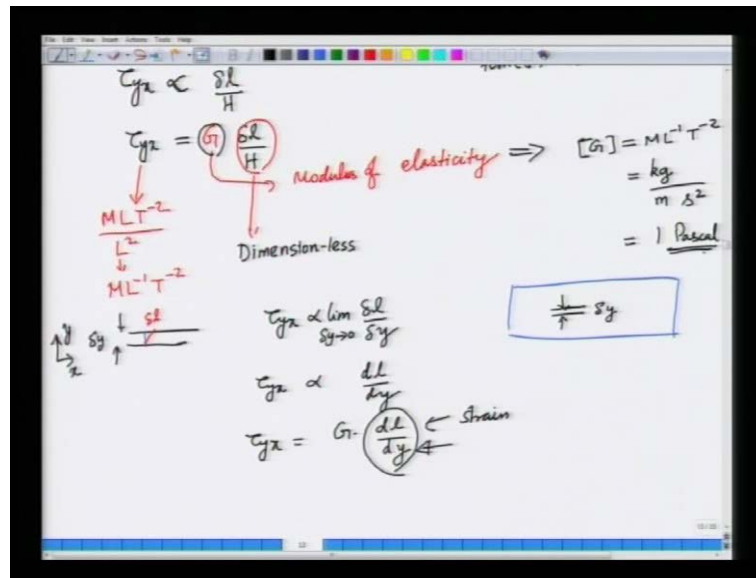 File Edit View Insert Actions Tools Help
τyx ∝ δl/H
τyx = G δl/H
Modules of elasticity ⇒ [G] = ML⁻¹T⁻²
= kg / m s²
= 1 Pascal
MLT⁻² / L²
ML⁻¹T⁻²
Dimension-less
y x δy δl
τyx ∝ lim δy→0 δl/δy
δy
τyx ∝ dl/dy
τyx = G · dl/dy ← Strain